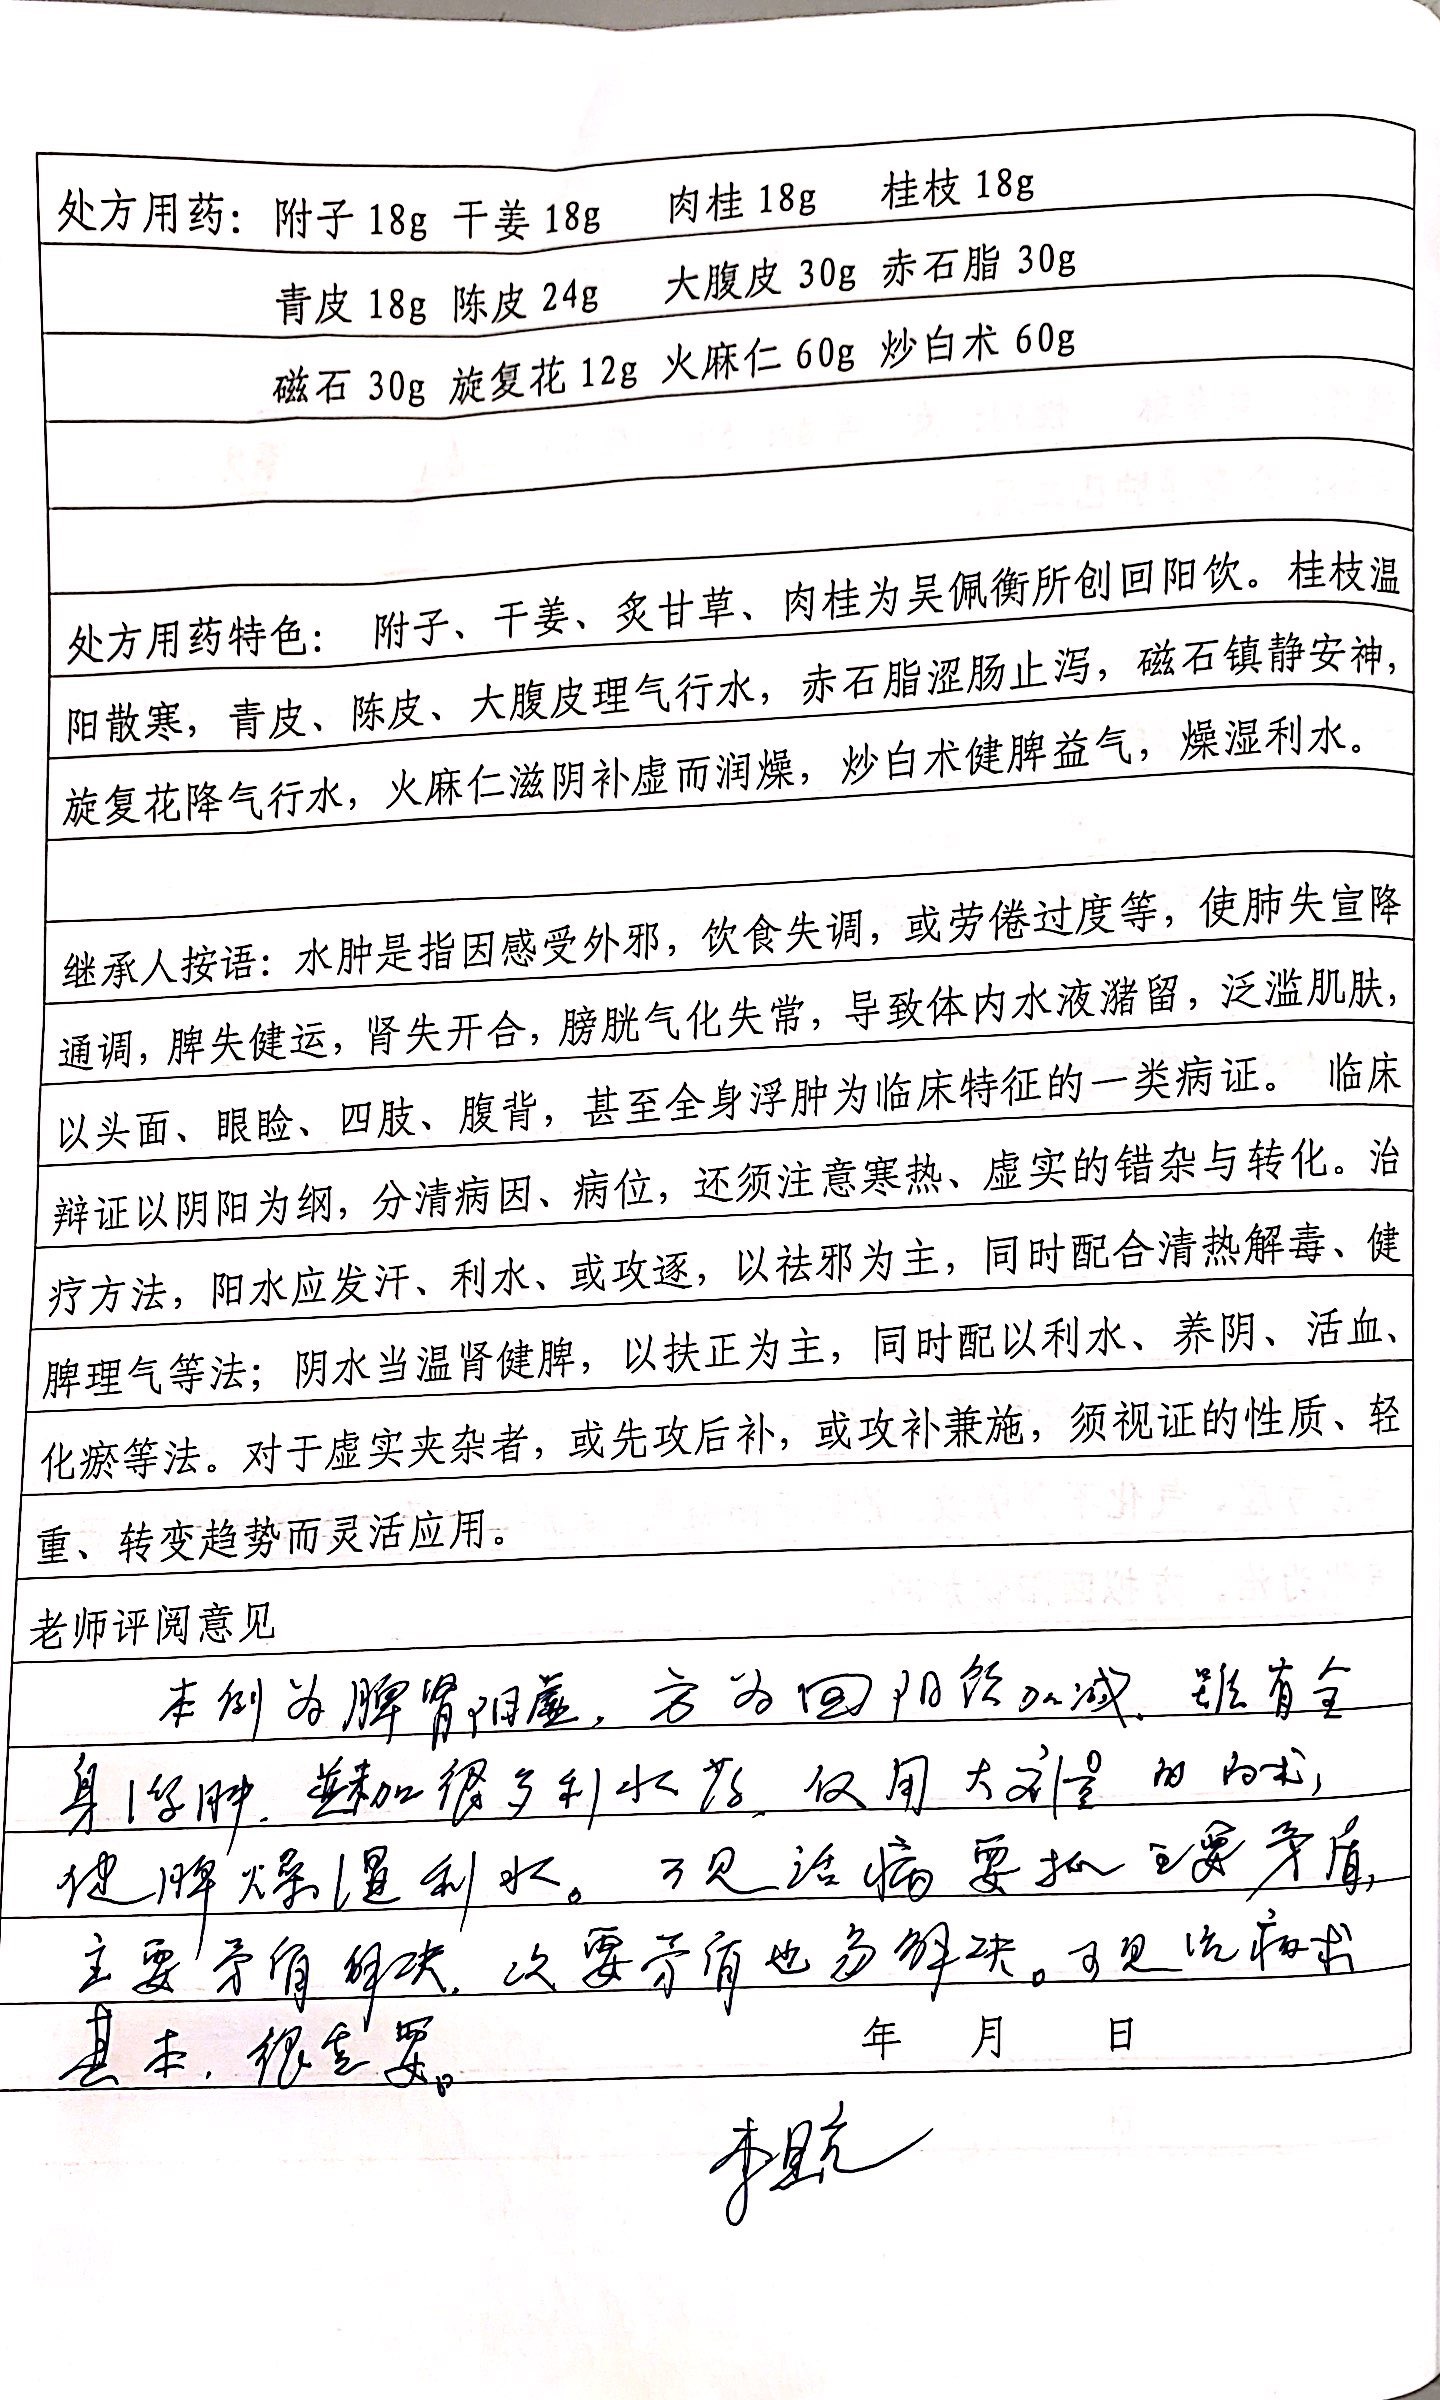 处方用药： 附子 18g 干姜 18g 肉桂 18g 桂枝 18g
青皮 18g 陈皮 24g 大腹皮 30g 赤石脂 30g
磁石 30g 旋复花 12g 火麻仁 60g 炒白术 60g
处方用药特色： 附子、干姜、炙甘草、肉桂为吴佩衡所创回阳饮。桂枝温
阳散寒，青皮、陈皮、大腹皮理气行水，赤石脂涩肠止泻，磁石镇静安神，
旋复花降气行水，火麻仁滋阴补虚而润燥，炒白术健脾益气，燥湿利水。
继承人按语：水肿是指因感受外邪，饮食失调，或劳倦过度等，使肺失宣降
通调，脾失健运，肾失开合，膀胱气化失常，导致体内水液潴留，泛滥肌肤，
以头面、眼睑、四肢、腹背，甚至全身浮肿为临床特征的一类病证。 临床
辩证以阴阳为纲，分清病因、病位，还须注意寒热、虚实的错杂与转化。治
疗方法，阳水应发汗、利水、或攻逐，以祛邪为主，同时配合清热解毒、健
脾理气等法；阴水当温肾健脾，以扶正为主，同时配以利水、养阴、活血、
化瘀等法。对于虚实夹杂者，或先攻后补，或攻补兼施，须视证的性质、轻
重、转变趋势而灵活应用。
老师评阅意见
本例为脾肾阳虚，方为回阳饮加减，虽有全
身浮肿，加很多利水药，仅用大剂量的白术，
健脾燥湿利水。可见治病要抓主要矛盾，
主要矛盾解决，次要矛盾也多解决。可见治病求
其本，很重要。
年 月 日
李